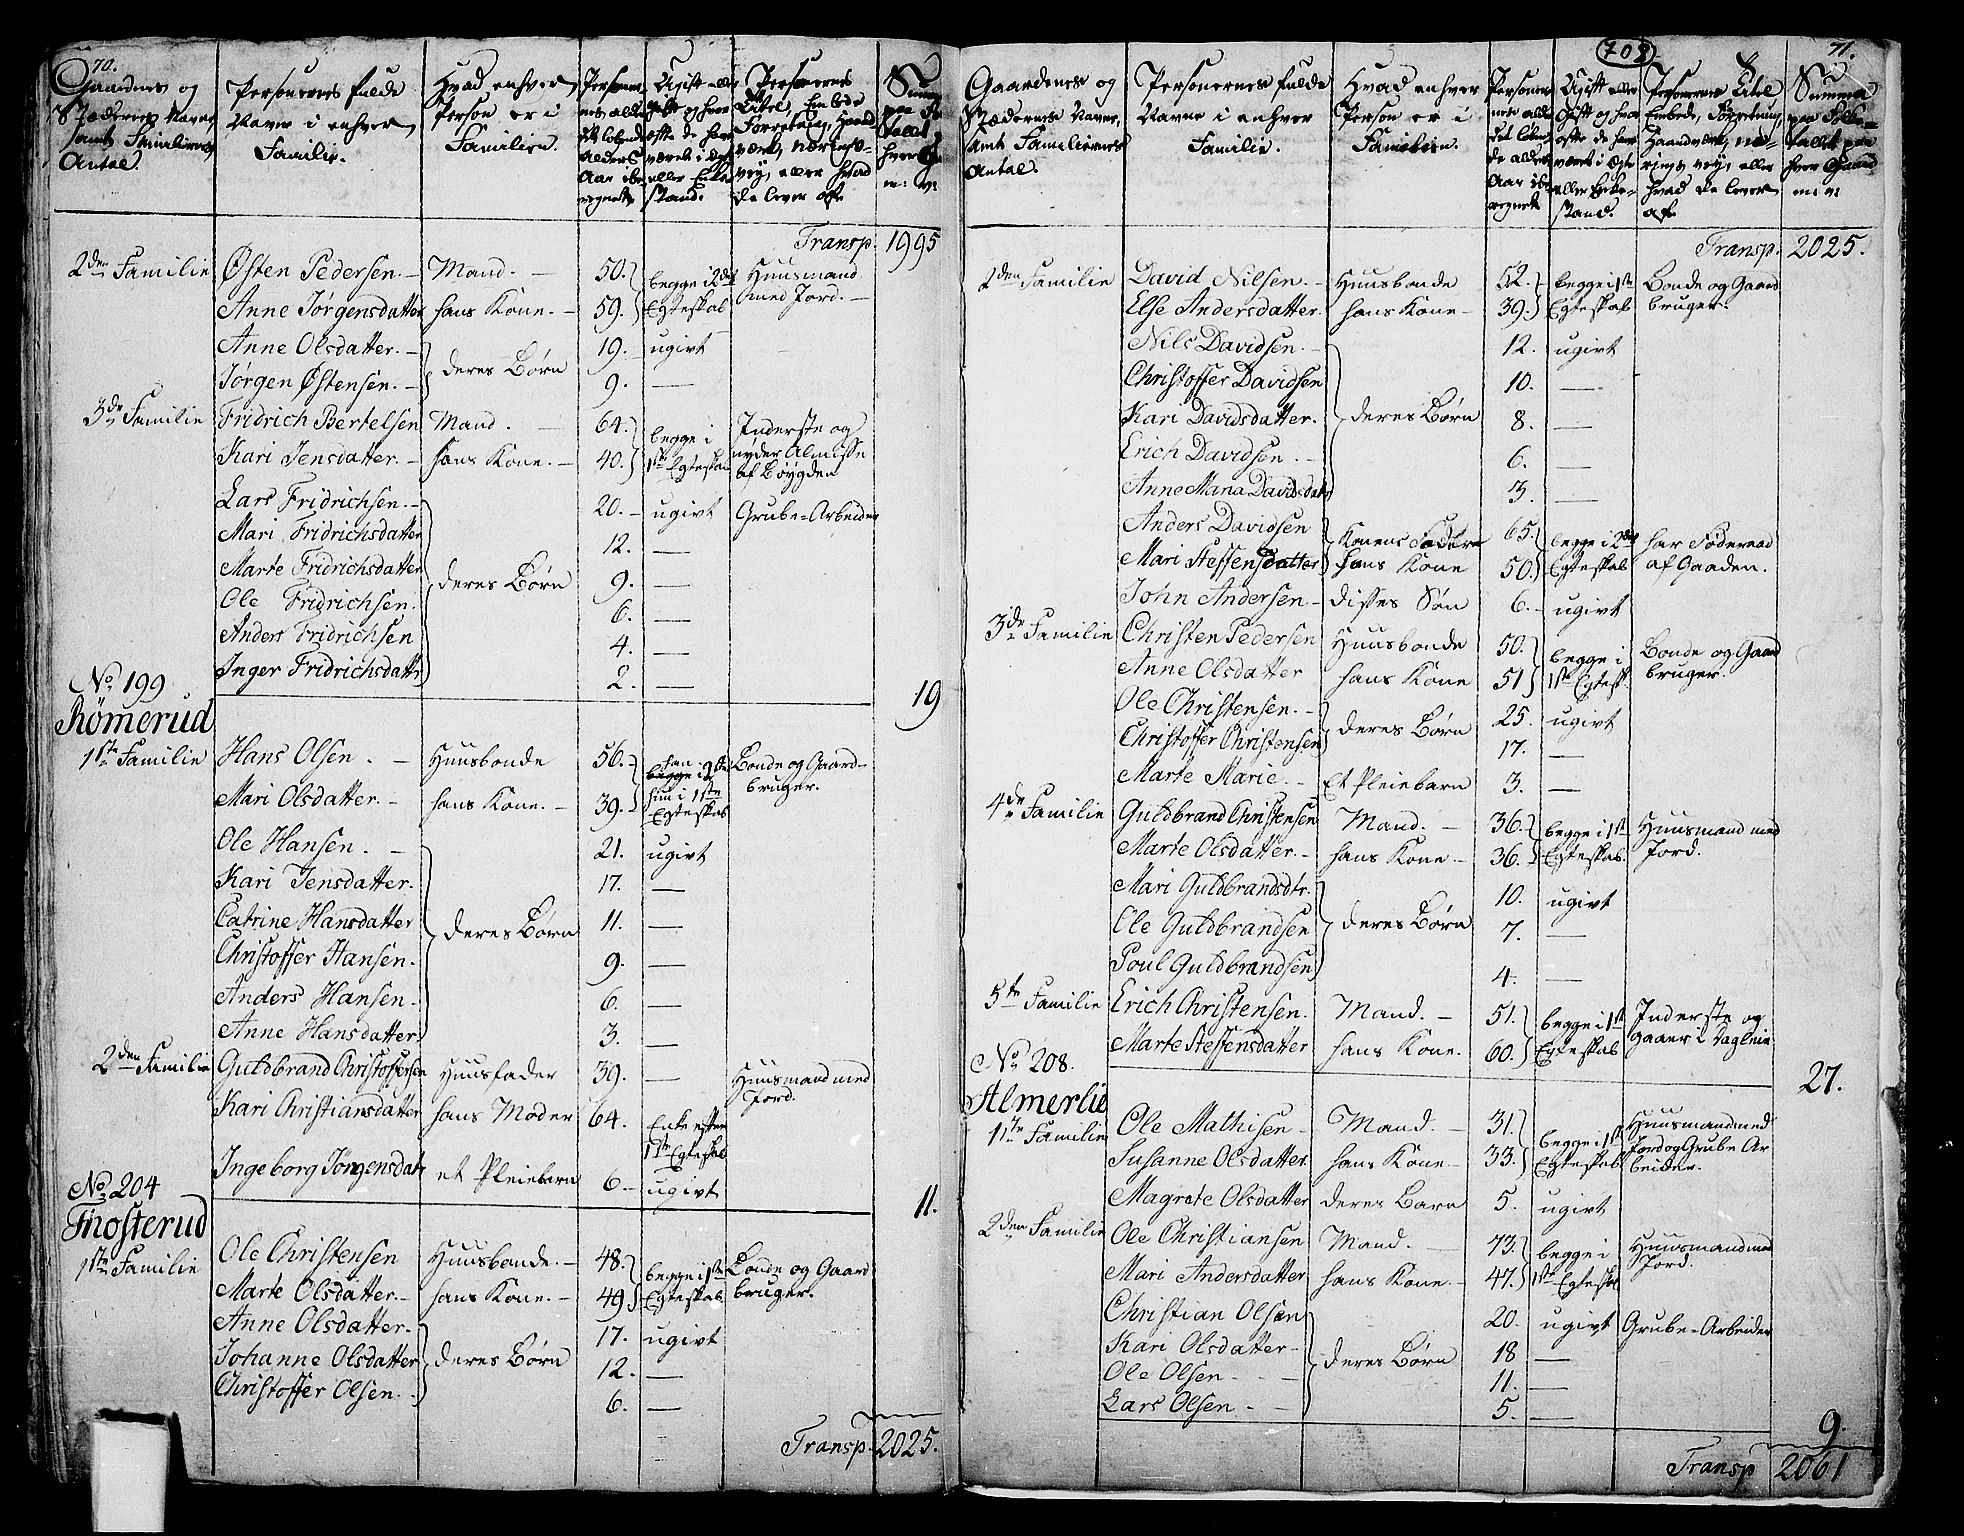 70.
Gaardenes og
Stædernes Navne,
samt Familiernes
Antal.
Personernes fulde
Navne i enhver
Familie.
Hvad enhver
Person er i
Familien.
Personernes
Titel, Embede
Forretning, Haand
værk, Nærings-
vey, eller hvad
de lever af
Transp. 1995
2den Familie Østen Pedersen. Mand. 50. begge i 2det Huusmand
Anne Jørgensdatter hans Kone. 59. Egteskab med Jord.
Anne Olsdatter. deres Børn 19. ugivt
Jørgen Østensen. 9. —
3de Familie Fridrich Bertelsen Mand. 64. begge i Inderste og
Kari Jensdatter. hans Kone. 40. 1ste Egteskab nyder Almisse
af Bøygden
Lars Fridrichsen. 20. ugivt Grube-Arbeider
Mari Fridrichsdatter 12. —
Marte Fridrichsdatter deres Børn 9. —
Ole Fridrichsen. 6. —
Anders Fridrichsen 4. —
Inger Fridrichsdattr 2. —
No. 199 19
Römerud
1ste Familie Hans Olsen. Huusbonde 56. han begge i 2det Bonde og Gaard-
Mari Olsdatter hans Kone. 39. hun i 1ste Egteskab bruger.
Ole Hansen. 21. ugivt
Kari Jensdatter. 17. —
Catrine Hansdatter deres Børn 11. —
Christoffer Hansen. 9. —
Anders Hansen. 6. —
Anne Hansdatter 3. —
2den Familie Guldbrand Christoffersen Huusfader 39. — Huusmand med
Jord.
Kari Christiansdatter hans Moder 64. Enke efter
1ste Egteskab
Ingeborg Jørgensdatr et Pleiebarn 6. ugivt
No. 204 11.
Fnosterud
1ste Familie Ole Christensen Huusbonde. 48. begge i 1ste Bonde og Gaard
Marte Olsdatter. hans Kone. 49 Egteskab bruger.
Anne Olsdatter. 17. ugivt
Johanne Olsdatter deres Børn 12. —
Christoffer Olsen. 6. —
Transp. 2025.
709
71.
Gaardenes og
Stædernes Navne,
samt Familiernes
Antal.
Personernes fulde
Navne i enhver
Familie.
Hvad enhver
Person er i
Familien.
Personernes Titel
Embede, Forretning,
Haandværk, næ-
rings vey, eller
hvad de lever
af
Summa
paa Folke-
tallet paa
hver Gaard
m: v:
Transp. 2025.
2den Familie David Nilsen. Huusbonde 52. begge i 1ste Bonde og Gaard
Else Andersdatter. hans Kone 39. Egteskab bruger.
Nils Davidsen. 12. ugivt
Christoffer Davidsen 10. —
Kari Davidsdatter. deres Børn 8. —
Erich Davidsen. 6. —
Anne Maria Davidsdatr 3. —
Anders Davidsen Konens Fader 65. begge i 2det har Føderaad
Mari Steffensdatter hans Kone 50. Egteskab af Gaarden.
John Andersen disses Søn 6. ugivt
3de Familie Christen Pedersen Huusbonde 50. begge i Bonde og Gaard
Anne Olsdatter hans Kone 51 1ste Egtesk. bruger.
Ole Christensen. deres Børn 25. ugivt
Christoffer Christensen 17. —
Marte Marie. Et Pleiebarn 3. —
4de Familie Guldbrand Christensen Mand. 36. begge i 1ste Huusmand med
Marte Olsdatter. hans Kone 36. Egteskab. Jord.
Mari Guldbrandsdtr. 10. ugivt
Ole Guldbrandsen deres Børn 7. —
Poul Guldbrandsen 4. —
5te Familie Erich Christensen. Mand. 51. begge i 1ste Inderste og
Marte Steffensdatter hans Kone. 60. Egteskab gaaer i Dagleie
No. 208. 27.
Almerlie
1ste Familie Ole Mathisen Mand. 31. begge i 1ste Huusmand med
Susanne Olsdatter hans Kone 33. Egteskab Jord og Grube Ar
beider.
Magrete Olsdatter deres Barn 5. ugivt
2den Familie Ole Christiansen Mand. 73. begge i Huusmand med
Mari Andersdatter hans Kone. 47. 1ste Egteskab Jord.
Christian Olsen 20. ugivt Grube-Arbeider
Kari Olsdatter deres Børn 18 —
Ole Olsen 11. —
Lars Olsen 5. —
9.
Transp 2061